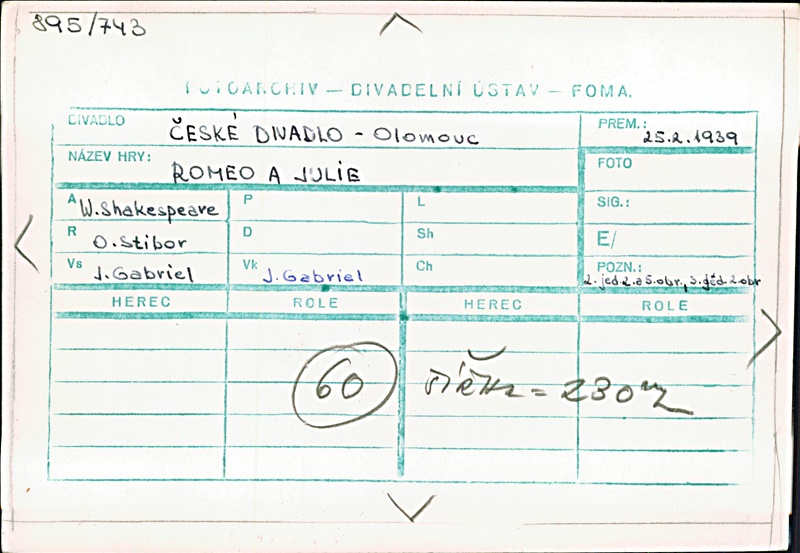 895/743
FOTOARCHIV — DIVADELNÍ ÚSTAV — FOMA.
DIVADLO ČESKÉ DIVADLO - Olomouc PREM.: 25.2.1939
NÁZEV HRY: ROMEO A JULIE FOTO
A W. Shakespeare P L SIG.:
R O. Stibor D Sh E/
Vs J. Gabriel Vk J. Gabriel Ch POZN.: 2. jed. 2. a 5. obr., 3. jed. 2. obr
HEREC ROLE HEREC ROLE
60 šířka = 230